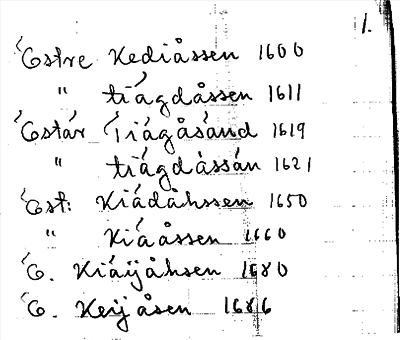 1.
Östre Kediåssen 1600
" tiägdåssen 1611
Östär Tiägåsänd 1619
" tiägdässän 1621
Öst: Kiädåhssen 1650
" Kiäåssen 1660
Ö. Kiäijåhsen 1680
Ö. Keijåsen 1686